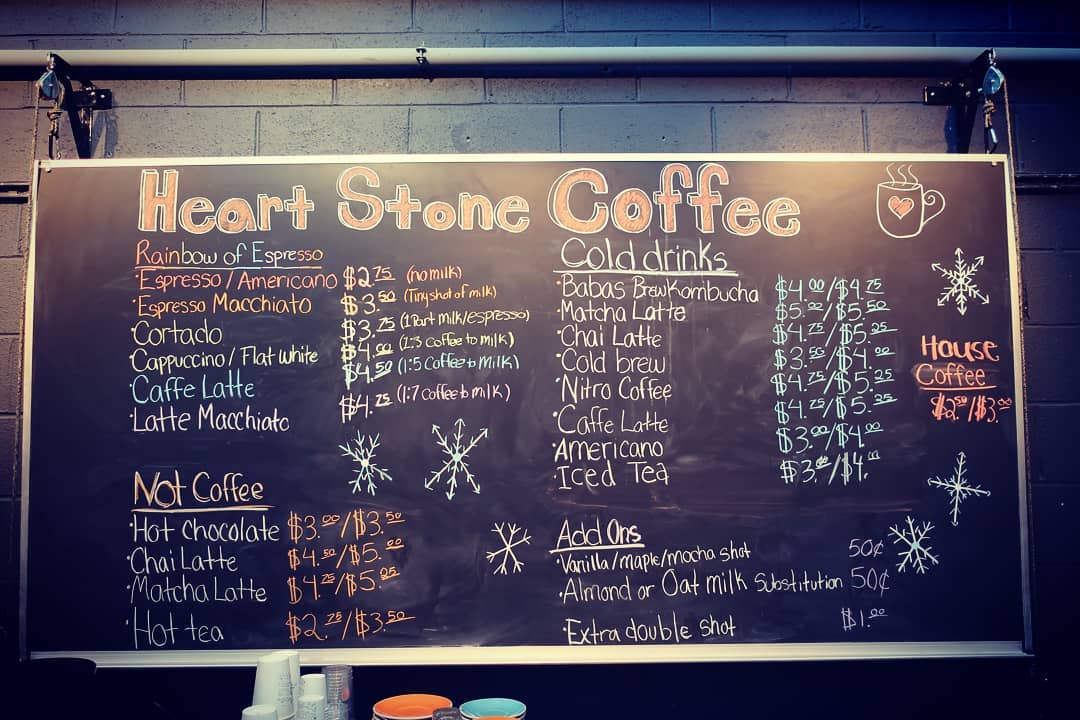 Heart Stone Coffee
Rainbow of Espresso
·Espresso/Americano $2.75 (no milk)
·Espresso Macchiato $3.50 (Tiny shot of milk)
·Cortado $3.75 (1 Part milk/espresso)
·Cappuccino/Flat white $4.00 (1:3 Coffee to milk)
·Caffe Latte $4.50 (1:5 Coffee to milk)
·Latte Macchiato $4.75 (1:7 coffee to milk)
Not Coffee
·Hot Chocolate $3.00/$3.50
·Chai Latte $4.50/$5.00
·Matcha Latte $4.75/$5.25
·Hot tea $2.75/$3.50
Cold drinks
·Babas Brew Kombucha $4.00/$4.75
·Matcha Latte $5.00/$5.50
·Chai Latte $4.75/$5.25
·Cold brew $3.50/$4.00
·Nitro Coffee $4.75/$5.25
·Caffe Latte $4.75/$5.25
·Americano $3.00/$4.00
·Iced Tea $3.00/$4.00
Add Ons
·Vanilla/maple/mocha shot 50¢
·Almond or Oat milk Substitution 50¢
·Extra double shot $1.00
House
Coffee
$2.50/$3.00